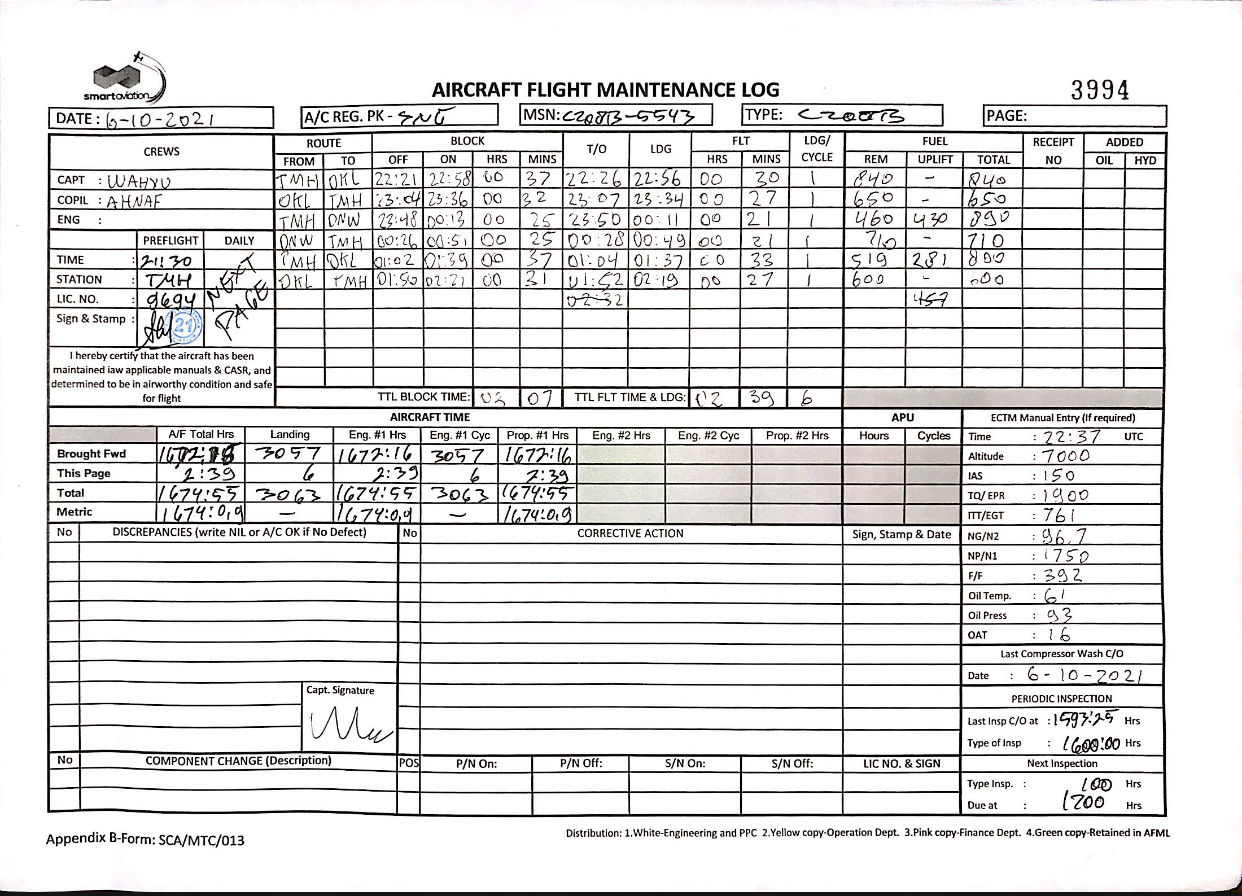 smartaviation
AIRCRAFT FLIGHT MAINTENANCE LOG
3994
DATE : 6-10-2021 A/C REG. PK - SNG MSN: C208B-5543 TYPE: C208B PAGE:
CREWS ROUTE BLOCK T/O LDG FLT LDG/ CYCLE FUEL RECEIPT NO ADDED
FROM TO OFF ON HRS MINS HRS MINS REM UPLIFT TOTAL OIL HYD
CAPT : WAHYU TMH OKL 22:21 22:58 00 37 22:26 22:56 00 30 1 840 - 840
COPIL : AHNAF OKL TMH 23:04 23:36 00 32 23:07 23:34 00 27 1 650 - 650
ENG : TMH DNW 23:48 00:13 00 25 23:50 00:11 00 21 1 460 430 890
PREFLIGHT DAILY DNW TMH 00:26 00:51 00 25 00:28 00:49 00 21 1 710 - 710
TIME : 21:30 TMH OKL 01:02 01:39 00 37 01:04 01:37 00 33 1 519 281 800
STATION : TMH NEXT PAGE OKL TMH 01:50 02:21 00 31 01:52 02:19 00 27 1 600 - 600
LIC. NO. : 9694 02:32 457
Sign & Stamp : 21
I hereby certify that the aircraft has been
maintained iaw applicable manuals & CASR, and
determined to be in airworthy condition and safe
for flight
TTL BLOCK TIME: 07 TTL FLT TIME & LDG: 02 39 6
AIRCRAFT TIME APU ECTM Manual Entry (If required)
A/F Total Hrs Landing Eng. #1 Hrs Eng. #1 Cyc Prop. #1 Hrs Eng. #2 Hrs Eng. #2 Cyc Prop. #2 Hrs Hours Cycles Time : 22:37 UTC
Brought Fwd 3057 1672:16 3057 1672:16 Altitude : 7000
This Page 2:39 6 2:39 6 2:39 IAS : 150
Total 1674:55 3063 1674:55 3063 1674:55 TQ/ EPR : 1900
Metric 1674:0,9 — 1674:0,9 — 1674:0,9 ITT/EGT : 761
No DISCREPANCIES (write NIL or A/C OK if No Defect) No CORRECTIVE ACTION Sign, Stamp & Date NG/N2 : 96.7
NP/N1 : 1750
F/F : 392
Oil Temp. : 61
Oil Press : 93
OAT : 16
Last Compressor Wash C/O
Date : 6-10-2021
Capt. Signature
PERIODIC INSPECTION
Last Insp C/O at : 1597:25 Hrs
Type of Insp : 1600:00 Hrs
No COMPONENT CHANGE (Description) POS P/N On: P/N Off: S/N On: S/N Off: LIC NO. & SIGN Next Inspection
Type Insp. : 100 Hrs
Due at : 1700 Hrs
Appendix B-Form: SCA/MTC/013
Distribution: 1.White-Engineering and PPC 2.Yellow copy-Operation Dept. 3.Pink copy-Finance Dept. 4.Green copy-Retained in AFML